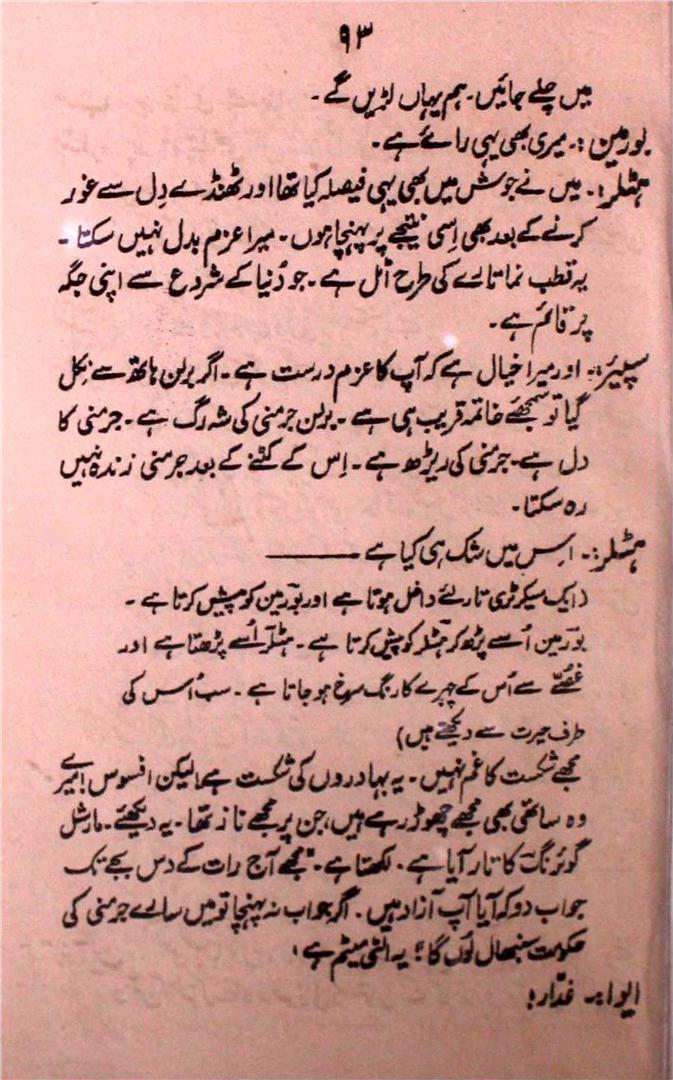 ۹۳
میں چلے جائیں۔ ہم یہاں لڑیں گے۔
بورمین :۔ میری بھی یہی رائے ہے۔
ہٹلر :۔ میں نے جوش میں بھی یہی فیصلہ کیا تھا اور ٹھنڈے دِل سے غور
کرنے کے بعد بھی اِسی نتیجے پر پہنچا ہوں۔ میرا عزم بدل نہیں سکتا۔
یہ قطب نما تارے کی طرح اٹل ہے۔ جو دُنیا کے شروع سے اپنی جگہ
پر قائم ہے۔
سپیئر :۔ اور میرا خیال ہے کہ آپ کا عزم درست ہے۔ اگر برلن ہاتھ سے نِکل
گیا تو سمجھئے خاتمہ قریب ہی ہے۔ برلن جرمنی کی شہ رگ ہے۔ جرمنی کا
دل ہے۔ جرمنی کی ریڑھ ہے۔ اِس کے کٹنے کے بعد جرمنی زندہ نہیں
رہ سکتا۔
ہٹلر :۔ اِس میں شک ہی کیا ہے ———
(ایک سیکرٹری تار لئے داخل ہوتا ہے اور بورمین کو پیش کرتا ہے۔
بورمین اُسے پڑھ کر ہٹلر کو پیش کرتا ہے۔ ہٹلر اُسے پڑھتا ہے اور
غصّے سے اُس کے چہرے کا رنگ سرخ ہو جاتا ہے۔ سب اُس کی
طرف حیرت سے دیکھتے ہیں)
مجھے شکست کا غم نہیں۔ یہ بہادروں کی شکست ہے لیکن افسوس! میرے
وہ ساتھی بھی مجھے چھوڑ رہے ہیں، جن پر مجھے ناز تھا۔ یہ دیکھئے۔ مارشل
گوئرنگ کا تار آیا ہے۔ لکھتا ہے۔ "مجھے آج رات کے دس بجے تک
جواب دو کہ آیا آپ آزاد ہیں۔ اگر جواب نہ پہنچا تو میں سارے جرمنی کی
حکومت سنبھال لُوں گا" یہ الٹی میٹم ہے!
ایوا :۔ غدّار!